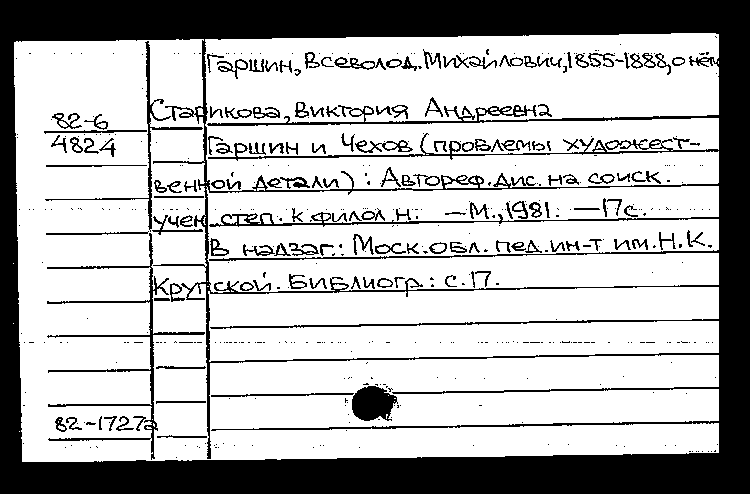 Гаршин, Всеволод Михайлович, 1855-1888, о нём
82-6 Старикова, Виктория Андреевна
4824 Гаршин и Чехов (проблемы художест-
венной детали) : Автореф. дис. на соиск.
учен. степ. к. филол. н. — М., 1981. — 17 с.
В надзаг.: Моск. обл. пед. ин-т им. Н. К.
Крупской. Библиогр.: с. 17.
82-1727а